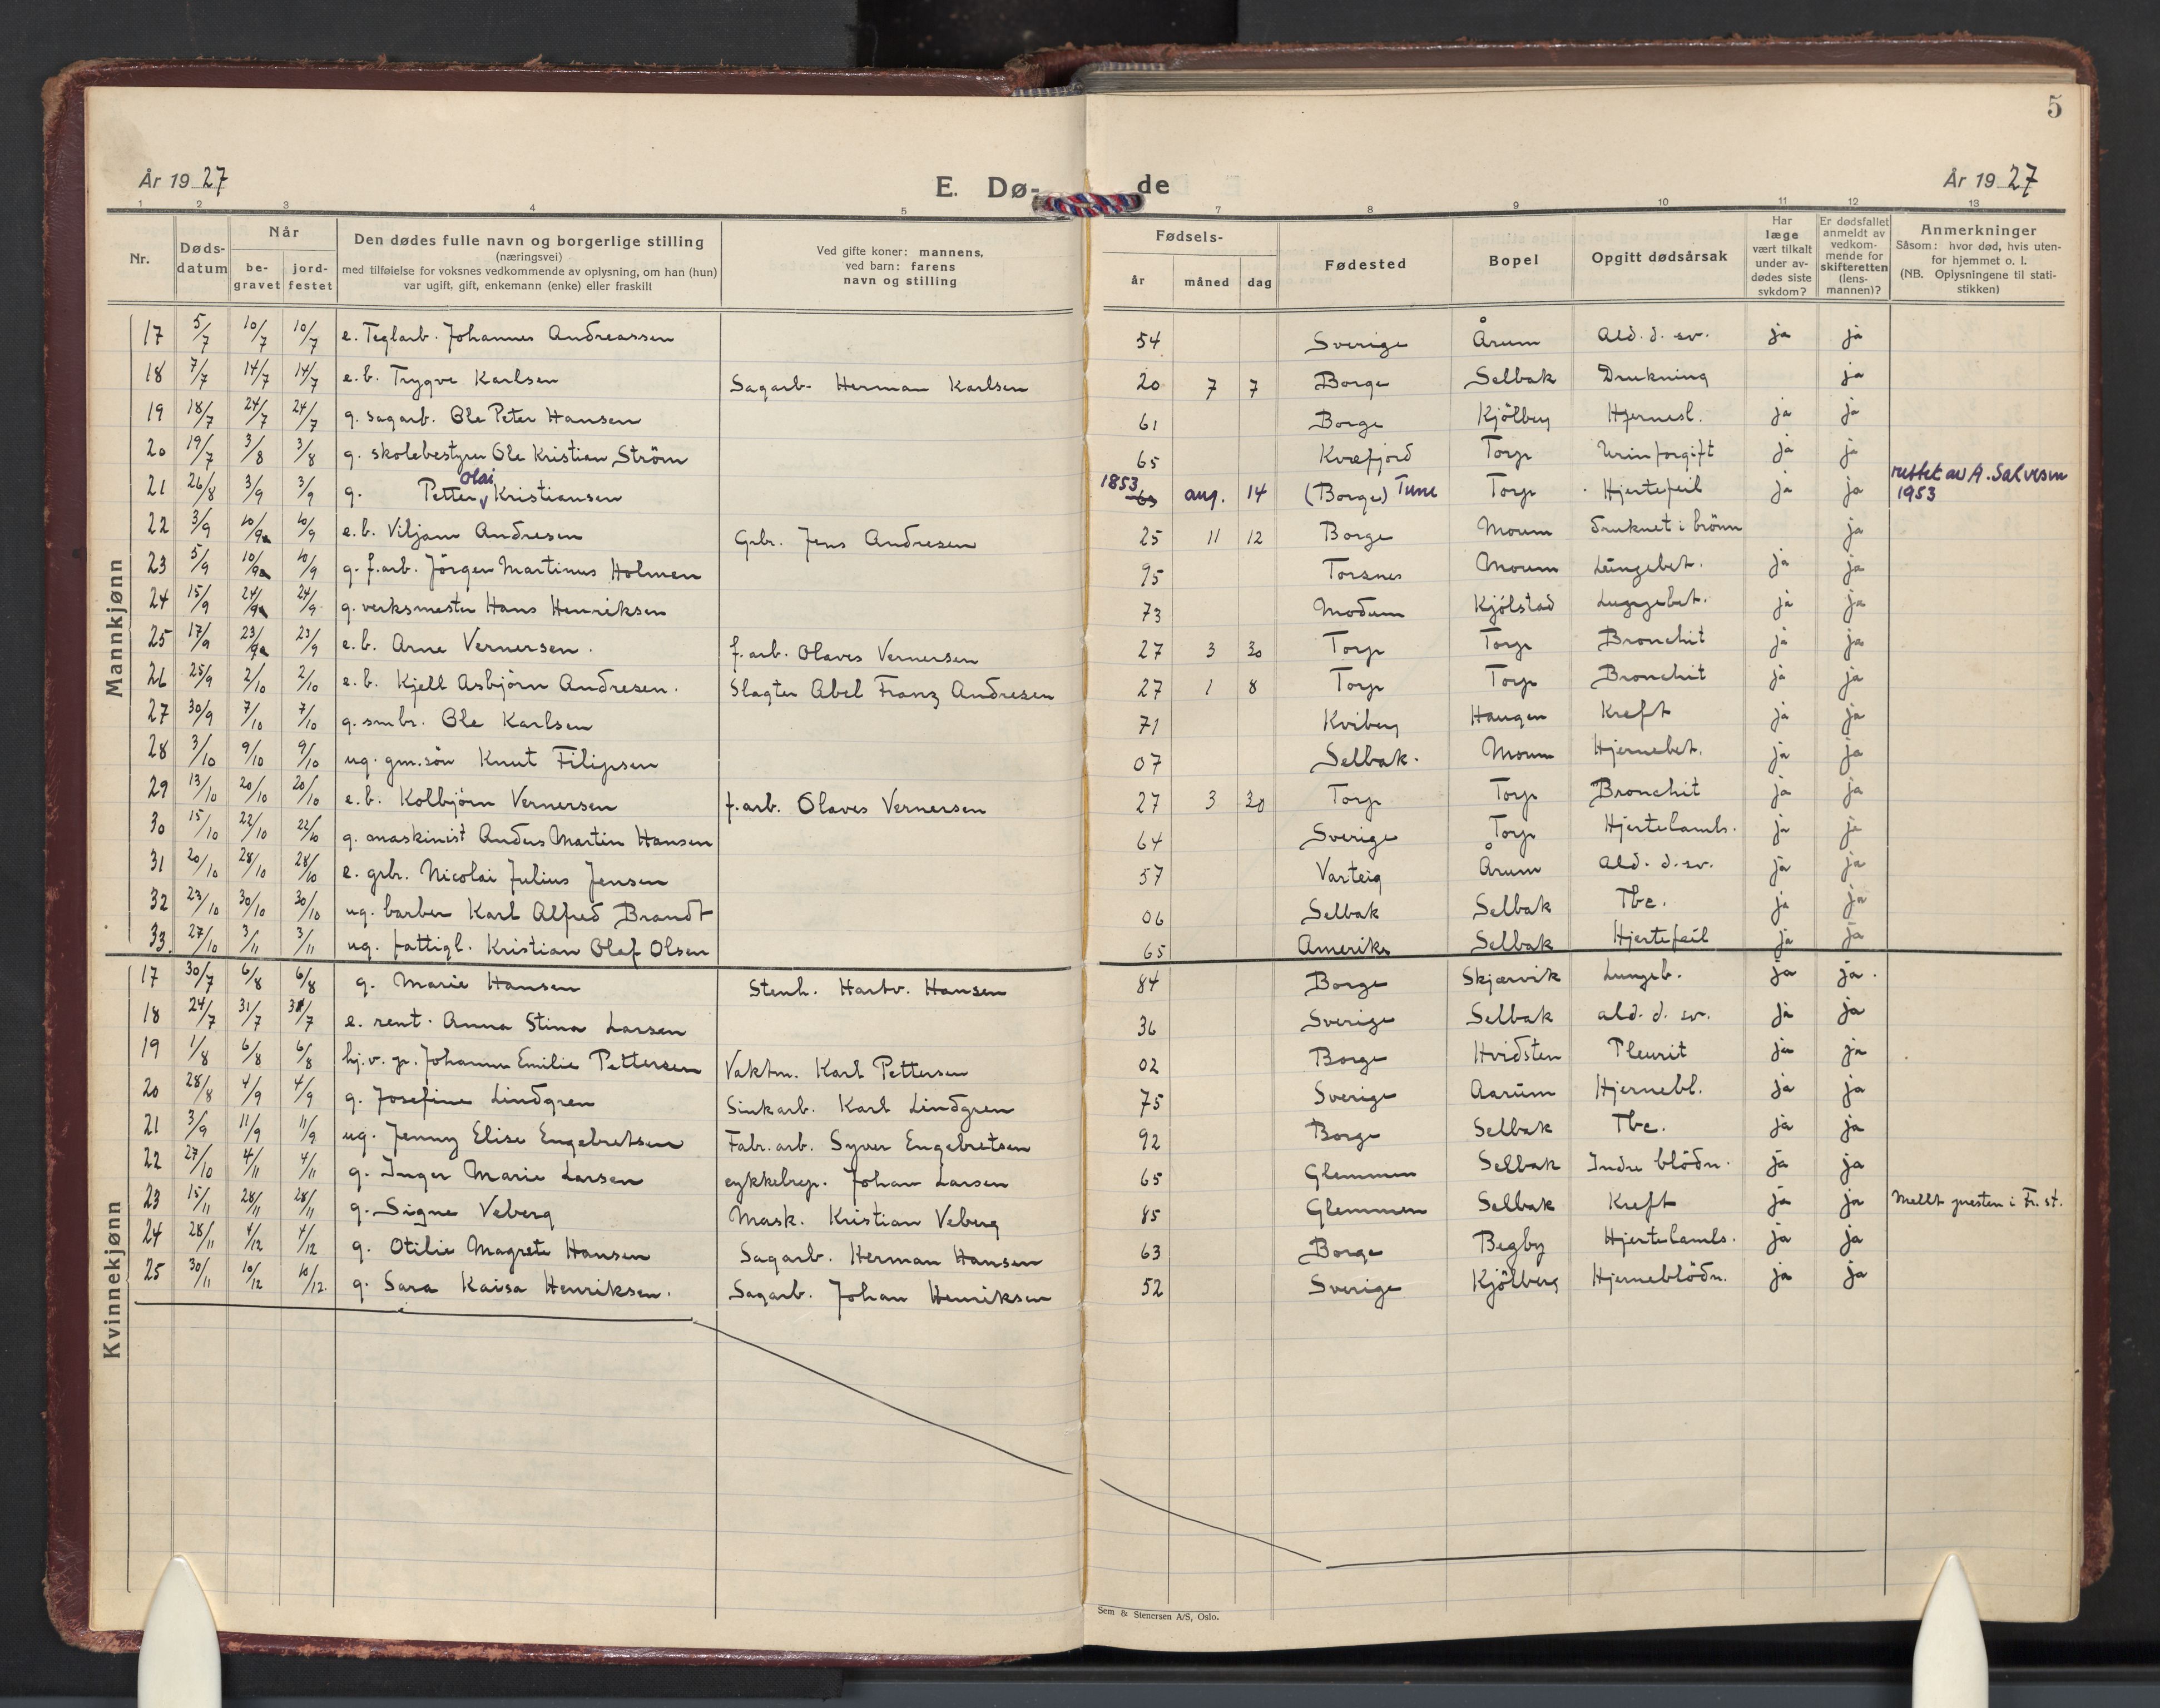 5
År 1927 E. Dø- de År 1927
1 2 3 4 5 7 8 9 10 11 12 13
Nr. Døds-datum Når be-gravet jord-festet Den dødes fulle navn og borgerlige stilling (næringsvei) med tilføielse for voksnes vedkommende av oplysning, om han (hun) var ugift, gift, enkemann (enke) eller fraskilt Ved gifte koner: mannens, ved barn: farens navn og stilling Fødsels- år måned dag Fødested Bopel Opgitt dødsårsak Har læge vært tilkalt under av-dødes siste sykdom? Er dødsfallet anmeldt av vedkom-mende for skifteretten (lens-mannen)? Anmerkninger Såsom: hvor død, hvis uten-for hjemmet o. l. (NB. Oplysningene til stati-stikken)
Mannkjønn
17 5/7 10/7 10/7 e. Teglarb. Johannes Andreassen 54 Sverige Årum Ald. d. sv. ja ja
18 7/7 14/7 14/7 e.b. Trygve Karlsen Sagarb. Herman Karlsen 20 7 7 Borge Selbak Drukning ja
19 18/7 24/7 24/7 g. sagarb. Ole Peter Hansen 61 Borge Kjölberg Hjernesl. ja ja
20 19/7 3/8 3/8 g. skolebestyrer Ole Kristian Ström 65 Kvæfjord Torp Urinforgift ja ja
21 26/8 3/9 3/9 g. Petter Olai Kristiansen 1853 63 aug. 14 (Borge) Tune Torp Hjertefeil ja ja rettet av A. Salvesen 1953
22 3/9 10/9 10/9 e.b. Viljam Andresen Grbr. Jens Andresen 25 11 12 Borge Moum druknet i brönn ja
23 5/9 10/9 10/9 g. f.arb. Jörgen Martinus Holmen 95 Torsnes Moum Lungebet. ja ja
24 15/9 24/9 24/9 g. verksmester Hans Henriksen 73 Modum Kjölstad Lungebet. ja ja
25 17/9 23/9 23/9 e.b. Arne Vernersen. f.arb. Olaves Vernersen 27 3 30 Torp Torp Bronchit ja ja
26 25/9 2/10 2/10 e.b. Kjell Asbjörn Andresen. Slagter Abel Franz Andresen 27 1 8 Torp Torp Bronchit ja ja
27 30/9 7/10 7/10 g. smbr. Ole Karlsen 71 Kviberg Haugen Kreft ja ja
28 3/10 9/10 9/10 ug. gm.sön Knut Filipsen 07 Selbak. Moum Hjernebet. ja ja
29 13/10 20/10 20/10 e.b. Kolbjörn Vernersen f.arb. Olaves Vernersen 27 3 30 Torp Torp Bronchit ja ja
30 15/10 22/10 22/10 g. maskinist Anders Martin Hansen 64 Sverige Torp Hjertelamls. ja ja
31 20/10 28/10 28/10 e. grbr. Nicolai Julius Jensen 57 Varteig Årum ald. d. sv. ja ja
32 23/10 30/10 30/10 ug. barber Karl Alfred Brandt 06 Selbak Selbak Tbc. ja ja
33. 27/10 3/11 3/11 ug. fattigl. Kristian Olaf Olsen 65 Amerika Selbak Hjertefeil ja ja
Kvinnekjønn
17 30/7 6/8 6/8 g. Marie Hansen Stenh. Hartv. Hansen 84 Borge Skjærvik Lungeb. ja ja.
18 24/7 31/7 31/7 e. rent. Anna Stina Larsen 36 Sverige Selbak ald. d. sv. ja ja
19 1/8 6/8 6/8 hj.v. g. Johanne Emilie Pettersen Vaktm. Karl Pettersen 02 Borge Hvidsten Pleurit ja ja
20 28/8 4/9 4/9 g. Josefine Lindgren Sinkarb. Karl Lindgren 75 Sverige Aarum Hjernebl. ja ja
21 3/9 11/9 11/9 ug. Jenny Elise Engebretsen Fabr. arb. Syver Engebretsen 92 Borge Selbak Tbc. ja ja
22 27/10 4/11 4/11 g. Inger Marie Larsen cykkelrep. Johan Larsen 65 Glemmen Selbak Indre blödn. ja ja
23 15/11 28/11 28/11 g. Signe Veberg Mask. Kristian Veberg 85 Glemmen Selbak Kreft ja ja Meldt presten i Fr. st.
24 28/11 4/12 4/12 g. Otilie Magrete Hansen Sagarb. Herman Hansen 63 Borge Begby Hjertelamls. ja ja
25 30/11 10/12 10/12. g. Sara Kaisa Henriksen. Sagarb. Johan Henriksen 52 Sverige Kjölberg Hjerneblödn. ja ja
Sem & Stenersen A/S, Oslo.